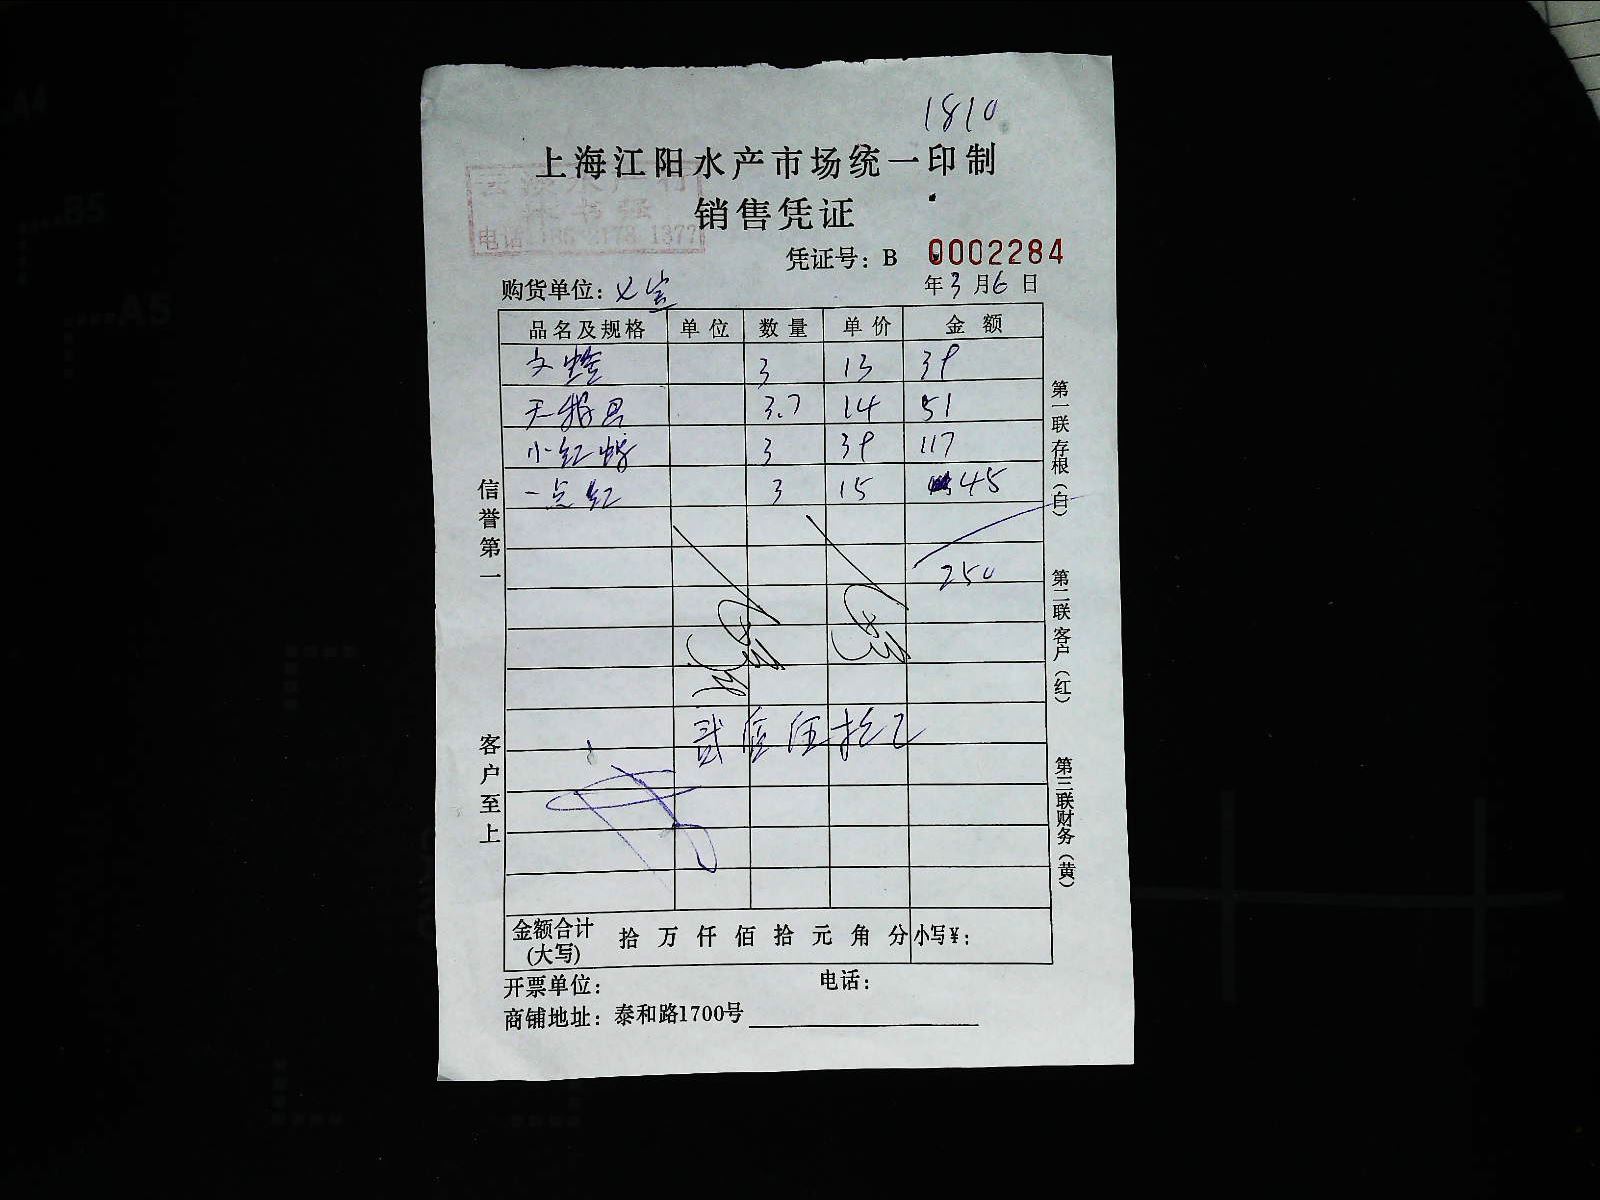 1810
上海江阳水产市场统一印制
销售凭证
电话
1377
凭证号：B 0002284
购货单位：
年3月6日
品名及规格 单位 数量 单价 金额
文蛏 3 13 39
3.7 14 51
小红 3 39 117
一点红 3 15 45
250
贰佰伍拾元
金额合计(大写) 拾 万 仟 佰 拾 元 角 分 小写¥：
开票单位： 电话：
商铺地址：泰和路1700号
信誉第一
客户至上
第一联 存根（白）
第二联 客户（红）
第三联 财务（黄）